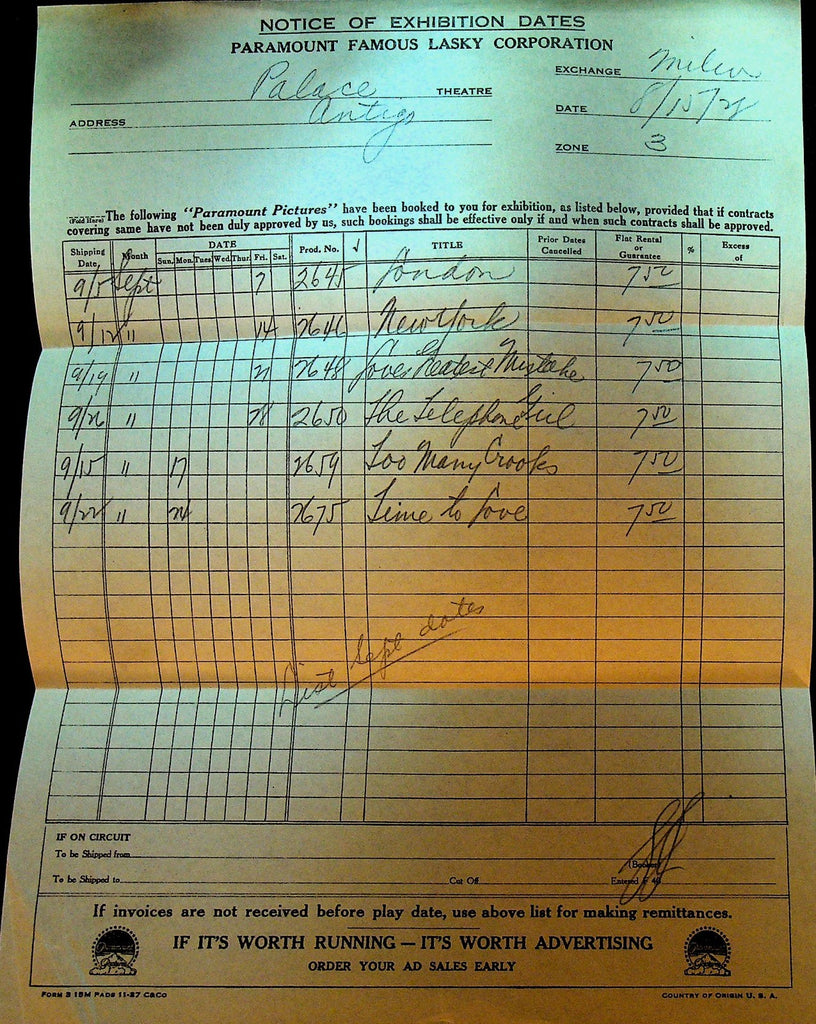 NOTICE OF EXHIBITION DATES
PARAMOUNT FAMOUS LASKY CORPORATION
Palace THEATRE
EXCHANGE Milw
ADDRESS Antigo
DATE 8/15/28
ZONE 3
(Fold Here) The following "Paramount Pictures" have been booked to you for exhibition, as listed below, provided that if contracts
covering same have not been duly approved by us, such bookings shall be effective only if and when such contracts shall be approved.
Shipping Date Month DATE Sun. Mon. Tues. Wed. Thur. Fri. Sat. Prod. No. √ TITLE Prior Dates Cancelled Flat Rental or Guarantee % Excess of
9/5 Sept 7 2645 London 7 50
9/12 " 14 2646 New York 7 50
9/19 " 21 2648 Loves Greatest Mistake 7 50
9/26 " 28 2650 The Telephone Girl 7 50
9/15 " 17 2659 Too Many Crooks 7 50
9/22 " 24 2675 Time to Love 7 50
Sept dates
IF ON CIRCUIT
To be Shipped from
(Booker)
To be Shipped to Cut Off Entered F 40
If invoices are not received before play date, use above list for making remittances.
IF IT'S WORTH RUNNING — IT'S WORTH ADVERTISING
ORDER YOUR AD SALES EARLY
Paramount Pictures
Paramount Pictures
FORM 3 15M PADS 11-27 C&CO
COUNTRY OF ORIGIN U. S. A.